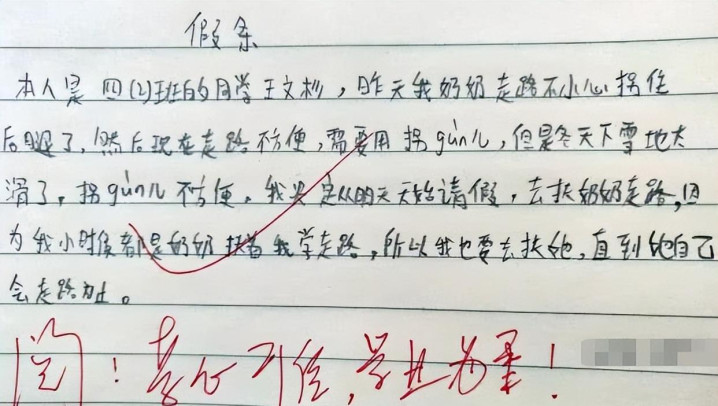 假条
本人是四(2)班的同学王文杉，昨天我奶奶走路不小心拐住
后腿了，然后现在走路不方便，需要用拐gùn儿，但是冬天下雪地太
滑了，拐gùn儿不方便，我决定从明天天始请假，去扶奶奶走路，因
为我小时候都是奶奶扶着我学走路，所以我也要去扶她，直到她自己
会走路为止。
阅：孝心可佳，学业为重！